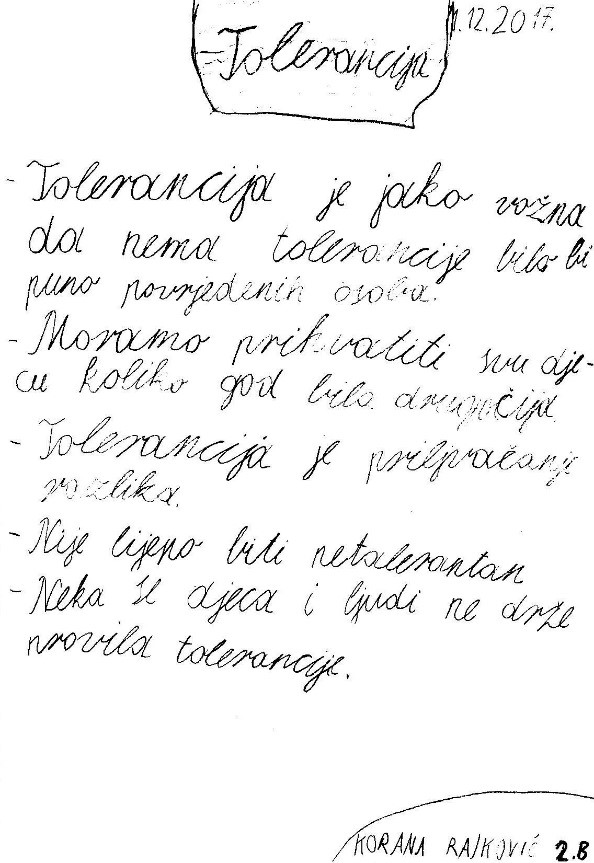 1.12.2017.
-Tolerancija
- Tolerancija je jako važna
da nema tolerancije bilo bi
puno povrjeđenih osoba.
- Moramo prihvatiti svu dje-
cu koliko god bila drugačija
- Tolerancija je prihvaćanje
različka.
- Nije lijepo biti netolerantan
- Neka se djeca i ljudi ne drže
pravila tolerancije.
KORANA RAJKOVIĆ 2.B